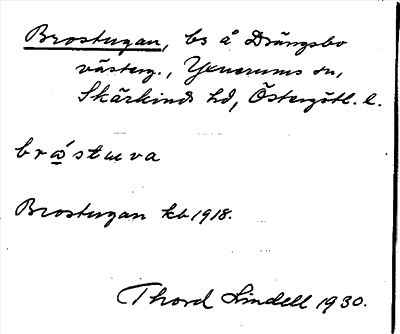 Brostugan, bs å Drängsbo
västerg., Yxnerums sn,
Skärkinds hd, Östergötl. l.
bråstuva
Brostugan kb 1918.
Thord Lindell 1930.